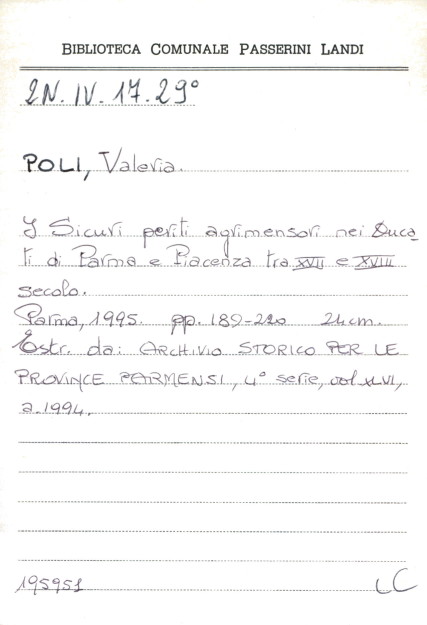 BIBLIOTECA COMUNALE PASSERINI LANDI
2N. IV. 17. 29°
POLI, Valeria.
I Sicuri periti agrimensori nei Duca-
ti di Parma e Piacenza tra XVII e XVIII
secolo.
Parma, 1995. pp. 189-220 24cm.
Estr. da: ARCHIVIO STORICO PER LE
PROVINCE PARMENSI, 4° serie, vol XLVI,
a. 1994.
195951 LC